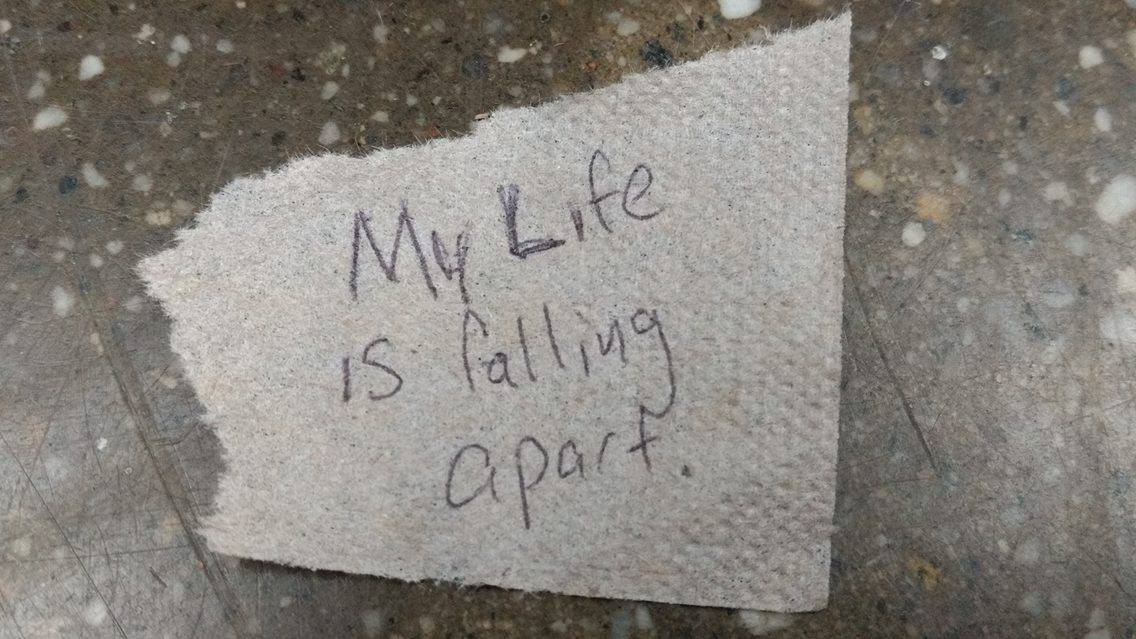 My Life
is falling
apart.